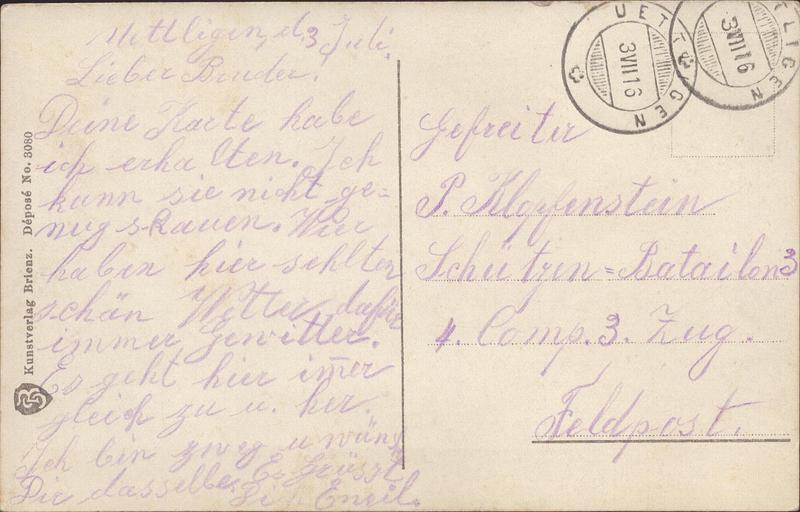 Uettligen, d. 3 Juli.
Lieber Bruder.
Deine Karte habe
ich erhalten. Ich
kann sie nicht ge=
nug skauen. Wier
haben hier sehlten
schän Wetter, dafür
immer Gewitter.
Es geht hier imer
gleich zu u. her.
Ich bin zweg u wünsch
Dir dasselbe. Es Grüsst
Dich Emil.
Kunstverlag Brienz. Déposé No. 3080
UETTLIGEN
3 VII 16
UETTLIGEN
3 VII 16
Gefreiter
P. Klopfenstein
Schützen=Batailon 3
4. Comp. 3. Zug.
Feldpost.